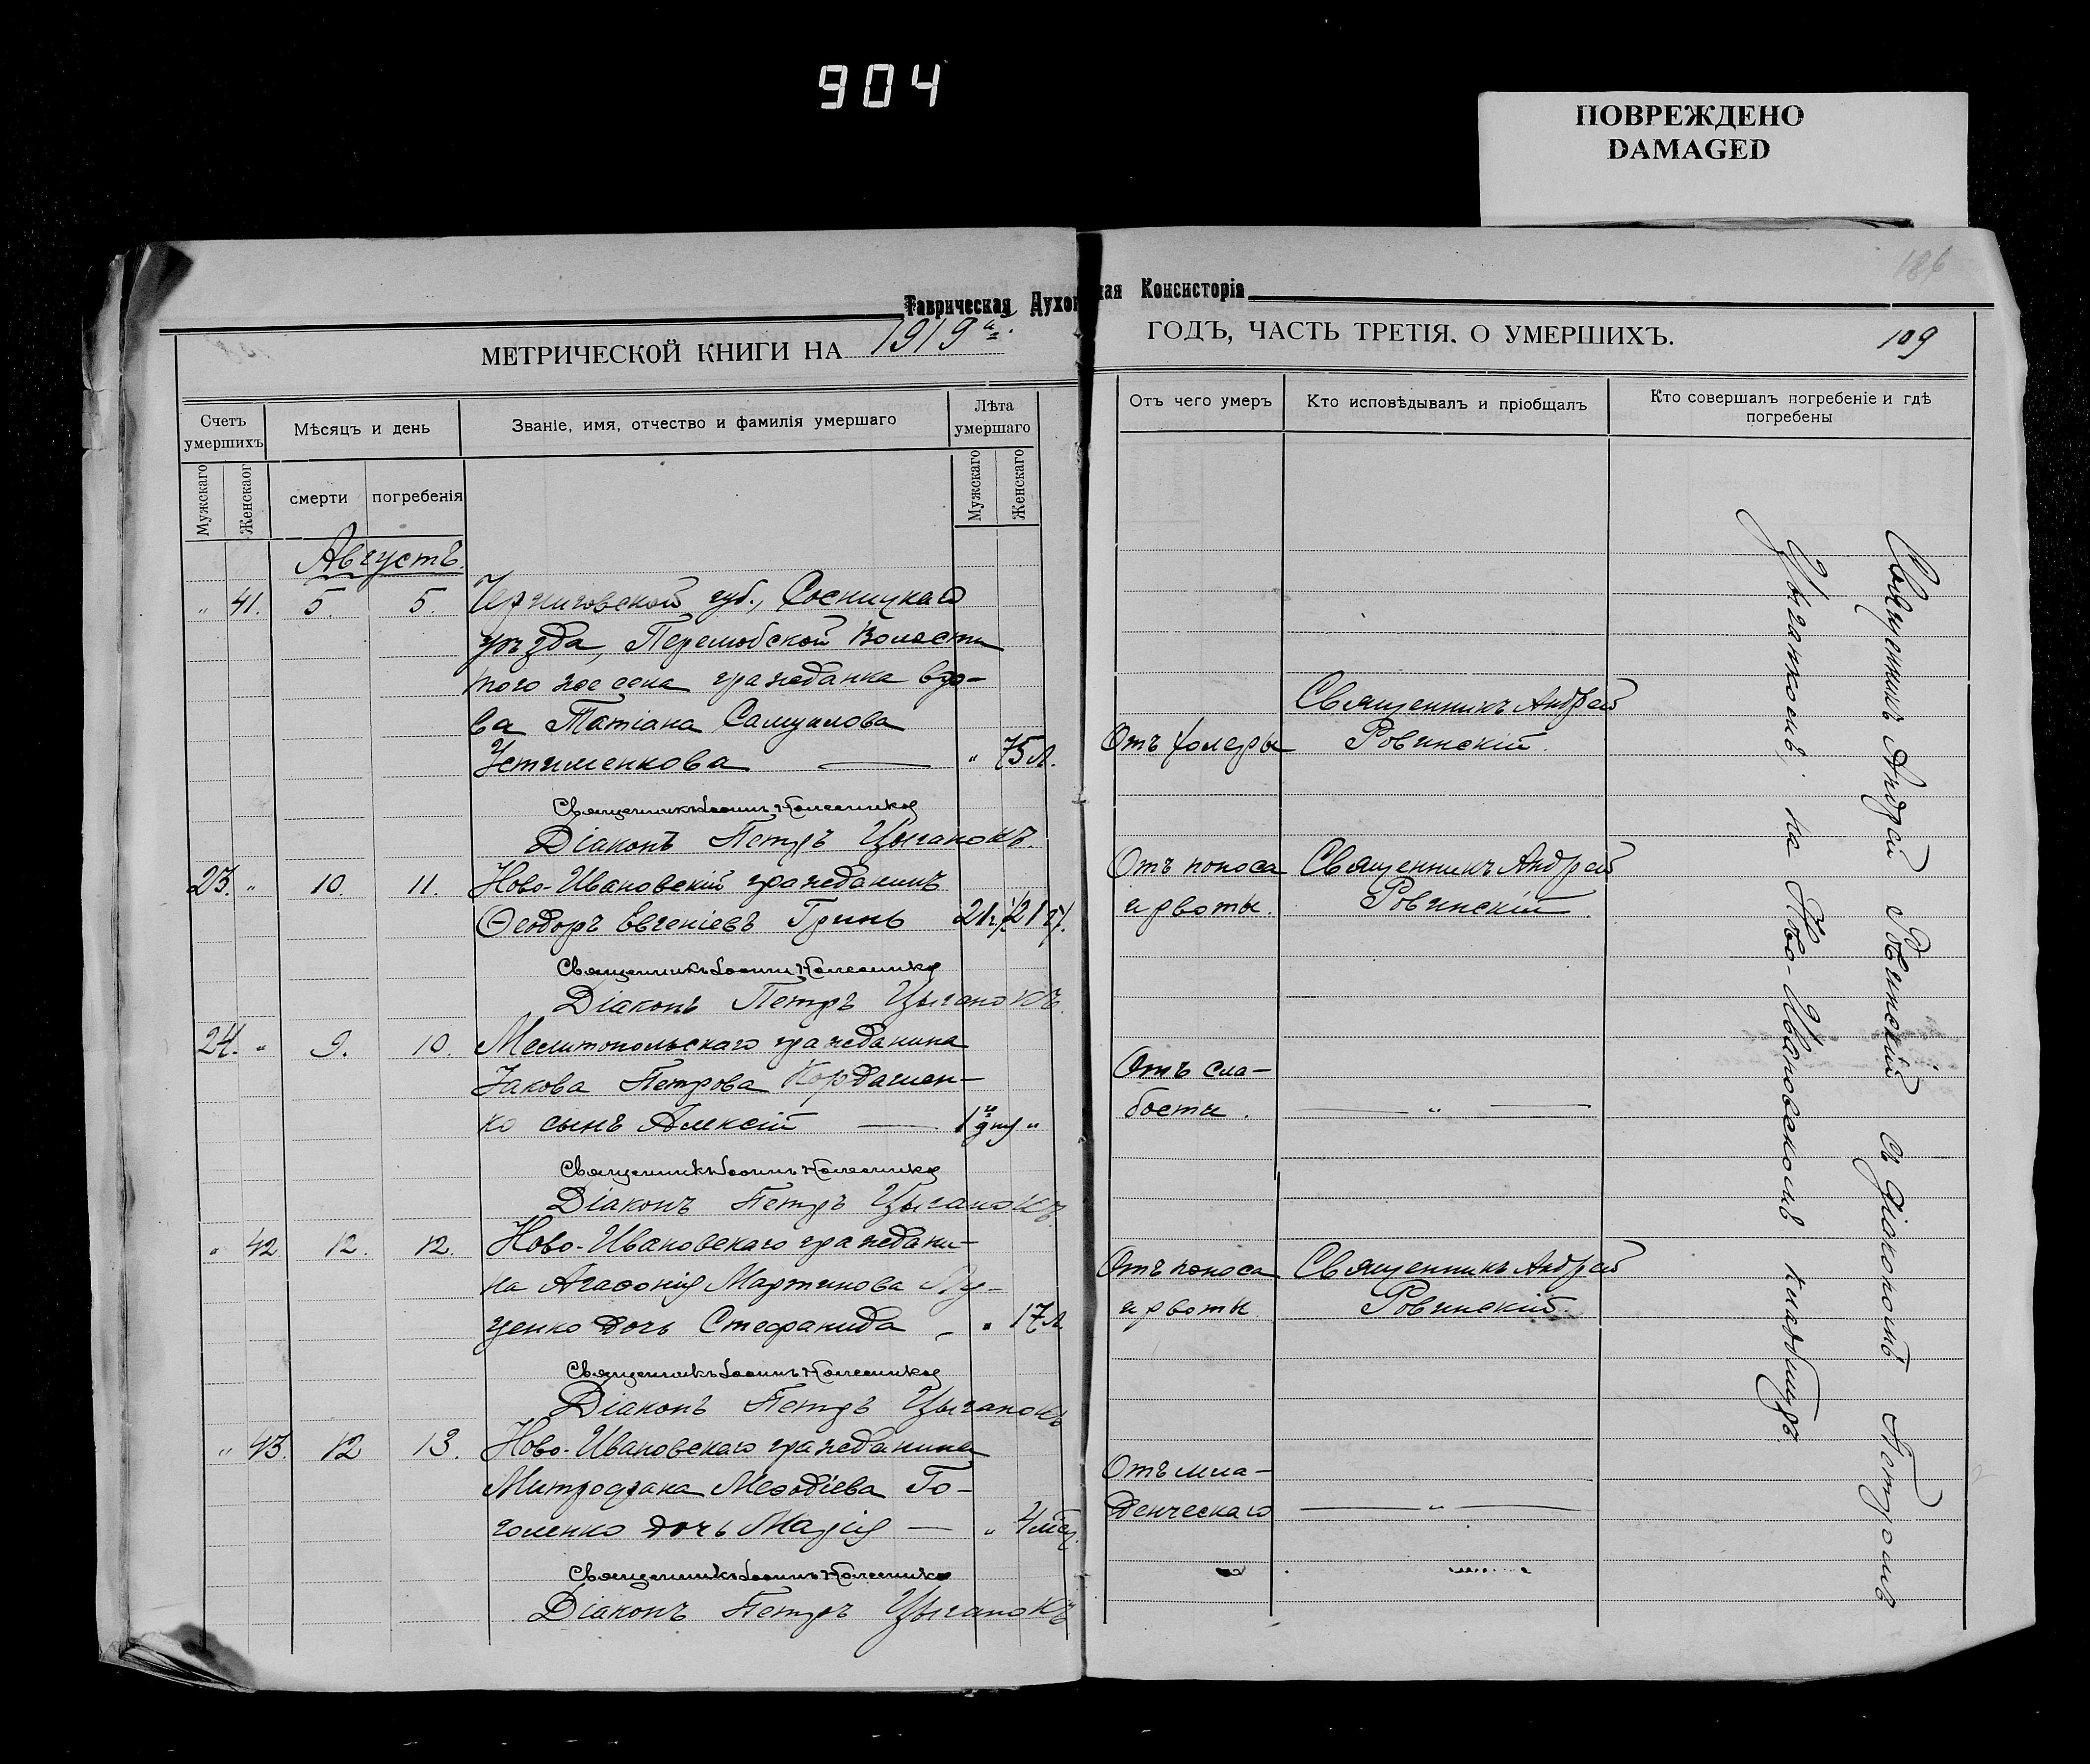 904
ПОВРЕЖДЕНО
DAMAGED
186
Таврическая Духовная Консисторія
МЕТРИЧЕСКОЙ КНИГИ НА 1919й
ГОДЪ, ЧАСТЬ ТРЕТІЯ. О УМЕРШИХЪ.
109
Счетъ умершихъ
Мѣсяцъ и день
Званіе, имя, отчество и фамилія умершаго
Лѣта умершаго
Отъ чего умеръ
Кто исповѣдывалъ и пріобщалъ
Кто совершалъ погребеніе и гдѣ погребены
Мужскаго
Женскаог
смерти
погребенія
Мужскаго
Женскаго
Августъ.
" 41. 5. 5. Черниговской губ., Сосницкаго
уѣзда, Перелюбской Волости
того же села гражданка вдо-
ва Татіана Самуилова
Устименкова — " 75 л.
Отъ холеры
Священникъ Андрей
Ровинскій.
Священникъ Іоаннъ Колесников
Діаконъ Петръ Цыганокъ.
23. " 10. 11. Ново-Ивановскій гражданинъ
Ѳеодоръ Евгеніевъ Гринь 21
Отъ поноса
и рвоты.
Священникъ Андрей
Ровинскій.
Священникъ Іоаннъ Колесников
Діаконъ Петръ Цыганокъ.
24. " 9. 10. Мелитопольскаго гражданина
Іакова Петрова Кордашен-
ко сынъ Алексій — 1й дня "
Отъ сла-
бости.
— " —
Священникъ Іоаннъ Колесников
Діаконъ Петръ Цыганокъ.
" 42 12. 12. Ново-Ивановскаго граждани-
на Агаѳонія Мартинова Лу-
ценко дочь Стефанида " 17 л.
Отъ поноса
и рвоты.
Священникъ Андрей
Ровинскій.
Священникъ Іоаннъ Колесников
Діаконъ Петръ Цыганокъ
" 43. 12 13. Ново-Ивановскаго гражданина
Митрофана Меѳодіева Го-
голенко дочь Марія — " 4 мѣс.
Отъ мла-
денческаго
— " —
Священникъ Іоаннъ Колесников
Діаконъ Петръ Цыганокъ
Священникъ Андрей Ровинскій съ діакономъ Петромъ
Цыганкомъ, на Ново-Ивановскомъ кладбищѣ.